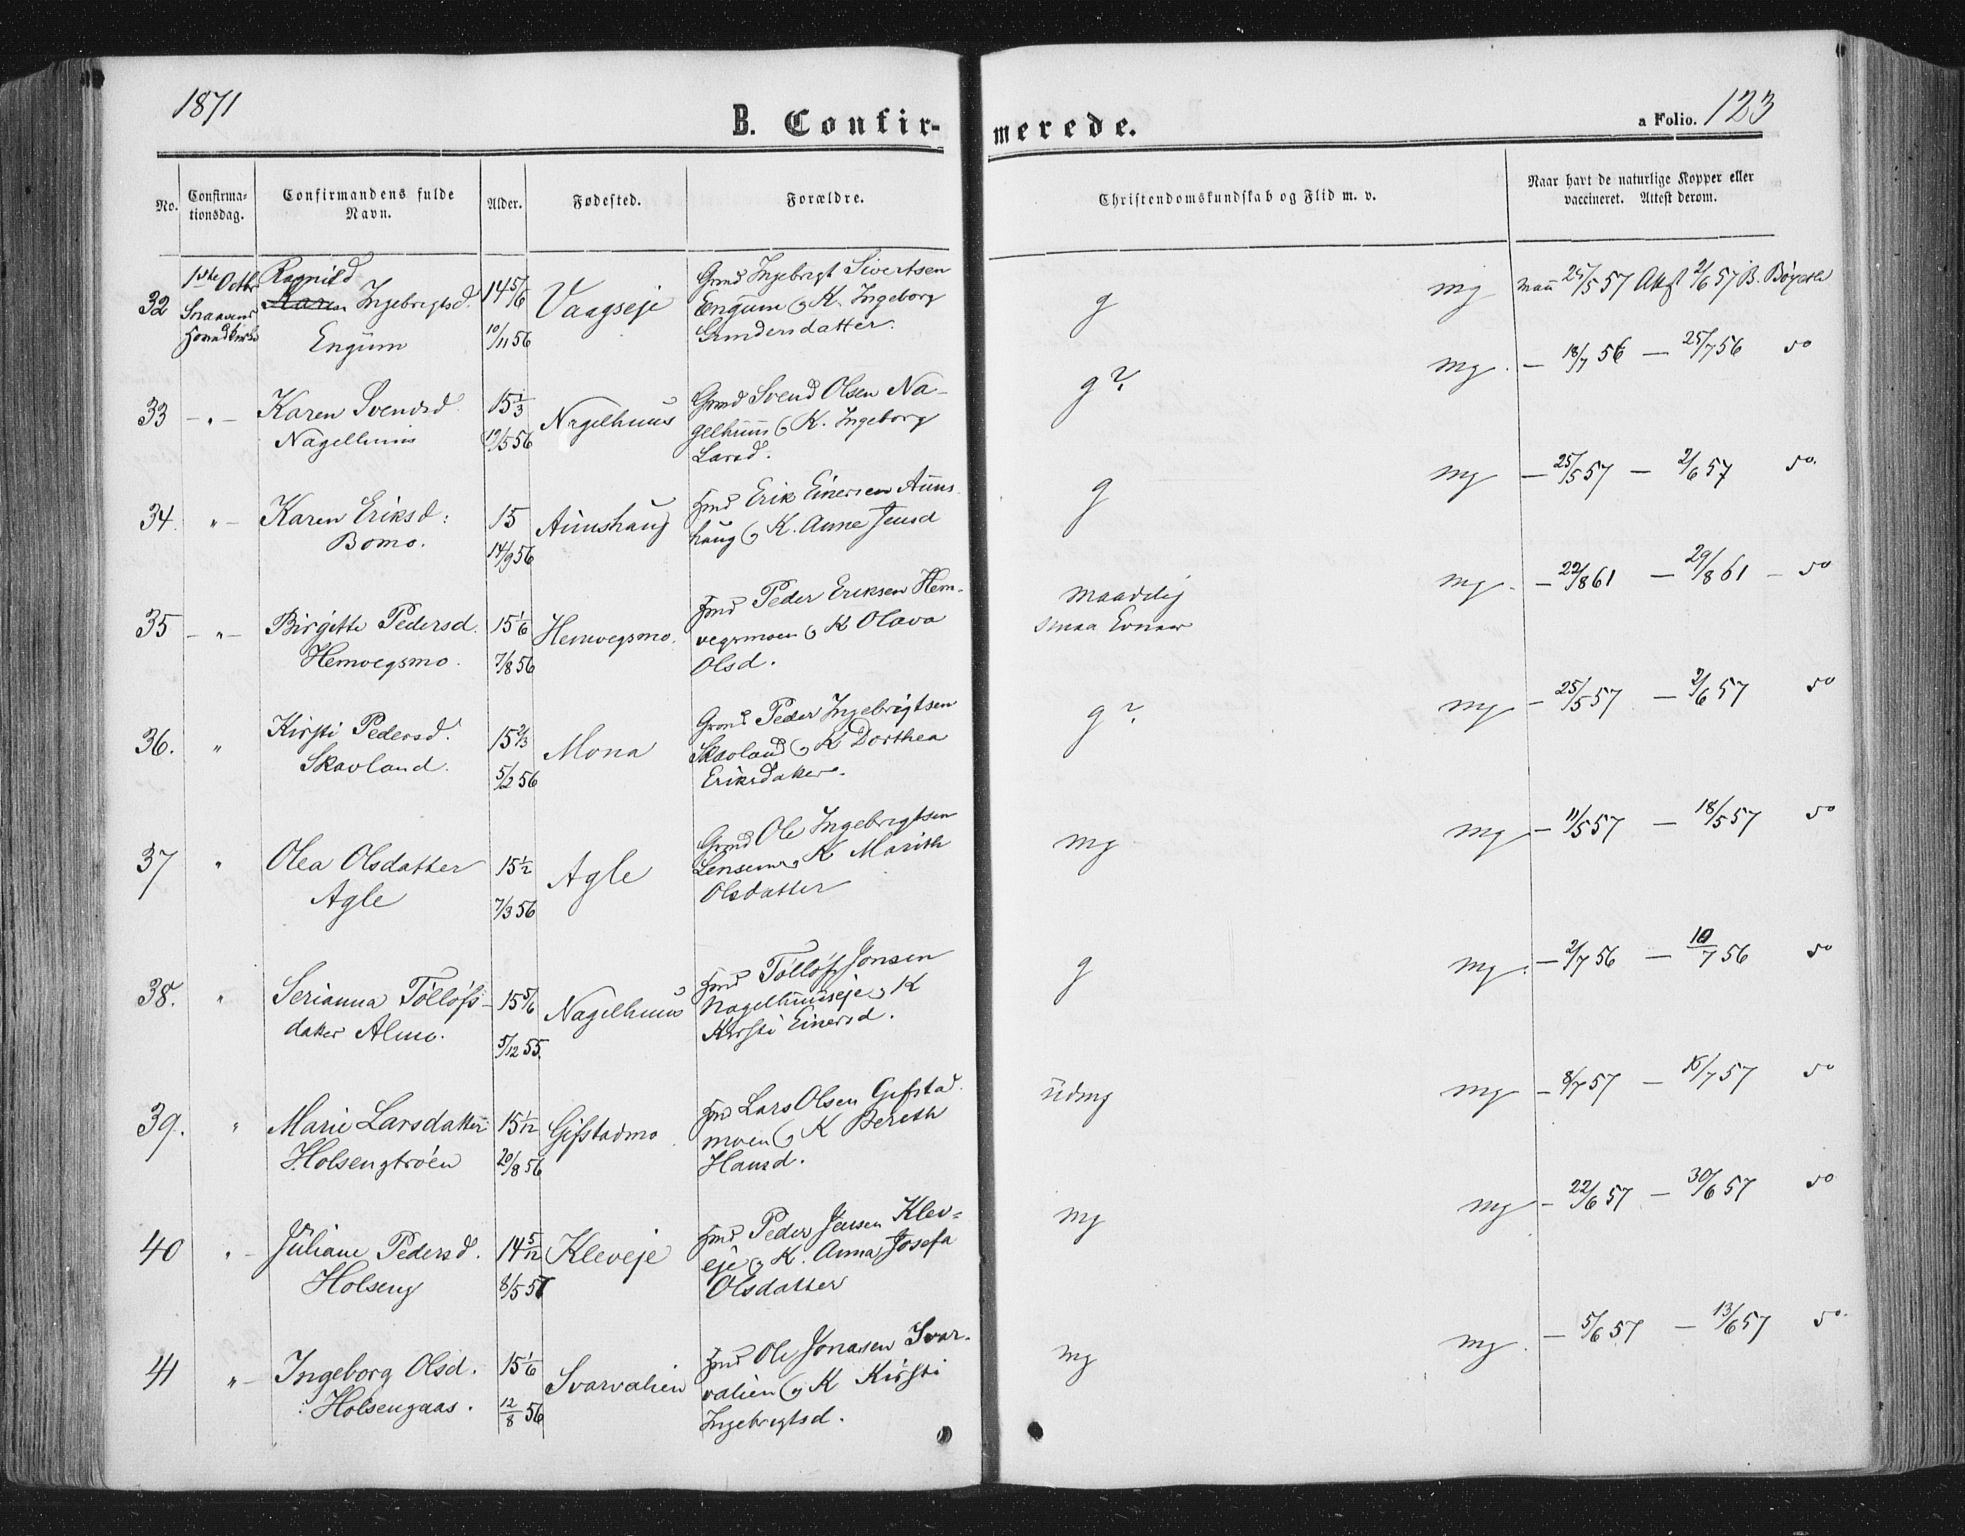 1871
B. Confir-
merede.
a Folio. 123
No.
Confirma-
tionsdag.
Confirmandens fulde
Navn.
Alder.
Fødested.
Forældre.
Christendomskundskab og Flid m. v.
Naar havt de naturlige Kopper eller
vaccineret. Attest derom.
32 1ste Octbr Ragnild
Karen Ingebrigtsd.
Engum
14 5/6
10/11 56
Vaagseje
Grmd Ingebrigt Sivertsen
Engum og K. Ingeborg
Gundersdatter.
g
mg
25/5 57 Att 2/6 57 B.
33 - " - Karen Svendsd.
Nagelhuus
15 1/3
19/5 56
Nagelhuus
Grmd Svend Olsen Na-
gelhuus og K. Ingeborg
Larsd.
g?
mg.
- 18/7 56 - 25/7 56 so
34. " - Karen Eriksd:
Bomo.
15
14/9 56
Aunshaug
Hmd Erik Einersen Auns
haug og K. Anne Jensd
g
mg
- 25/5 57 - 2/6 57 so.
35 - " - Birgitte Pedersd.
Hemvegsmo.
15 1/6
7/8 56
Hemvegsmo.
Hmd Peder Eriksen Hem-
vegsmoen og K Olava
Olsd.
maadelig
smaa Evner
mg.
- 22/8 61 - 29/8 61 - so
36. " Kirsti Pedersd.
Skavland.
15 2/3
5/2 56
Mona
Grmd Peder Ingebrigtsen
Skavland og K Dorthea
Eriksdatter.
g?
mg
- 25/5 57 - 2/6 57 so
37 " Olea Olsdatter
Agle
15 1/2
7/3 56
Agle
Grmd Ole Ingebrigtsen
og K Marith
Olsdatter
mg
mg
- 11/5 57 - 18/5 57 so
38. " Serianna Tollófs-
datter Almo.
15 5/6
5/12 55.
Nagelhuus
Hmd Tollóf Jonsen
Nagelhuuseje og K
Kirsti Einersd.
g
mg.
- 2/7 56 - 10/7 56 so
39. " Marie Larsdatter
Holsengtróen
15 1/12
20/8 56
Gifstadmo
Hmd Lars Olsen Gifstad
moen og K Bereth
Hansd.
udmg
mg
- 8/7 57 - 16/7 57 so
40 " - Juliane Pedersd.
Holseng
14 5/12
8/5 57
Kleveje
Hmd Peder Jensen Klev-
eje og K. Anna Josefa
Olsdatter
mg
mg
- 22/6 57 - 30/6 57 so
41 " - Ingeborg Olsd.
Holsengaas.
15 1/6
12/8 56
Svarvalien
Hmd Ole Jonasen Svar-
valien og K Kirsti
Ingebrigtsd.
mg
mg.
- 5/6 57 - 13/6 57 so.